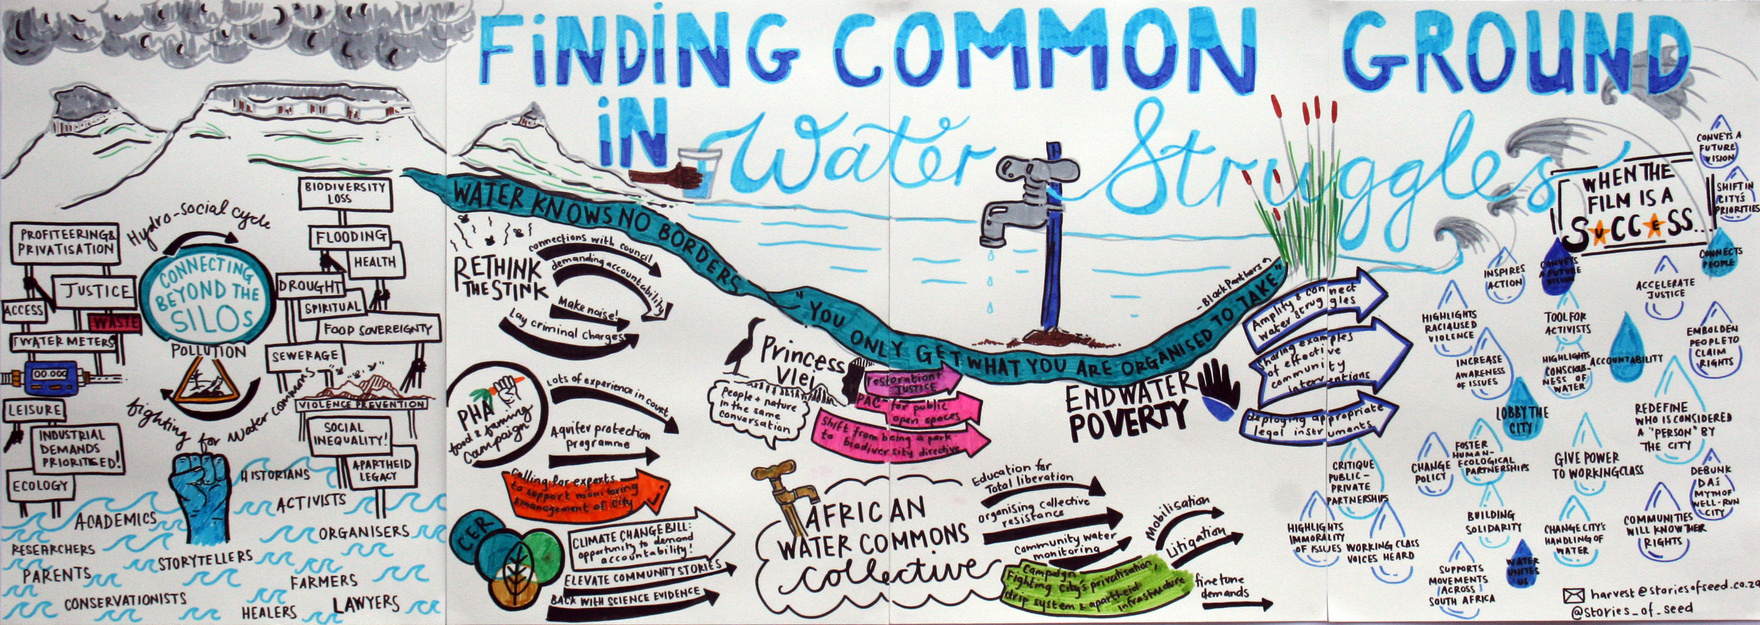 FINDING COMMON GROUND
IN Water Struggles
Hydro-social cycle
CONNECTING
BEYOND THE
SILOS
POLLUTION
fighting for water commons
PROFITEERING &
PRIVATISATION
JUSTICE
ACCESS
WASTE
WATER METERS
LEISURE
INDUSTRIAL
DEMANDS
PRIORITISED!
ECOLOGY
BIODIVERSITY
LOSS
FLOODING
HEALTH
DROUGHT
SPIRITUAL
FOOD SOVEREIGNTY
SEWERAGE
VIOLENCE PREVENTION
SOCIAL
INEQUALITY!
APARTHEID
LEGACY
HISTORIANS
ACADEMICS
ACTIVISTS
ORGANISERS
RESEARCHERS
STORYTELLERS
PARENTS
FARMERS
CONSERVATIONISTS
HEALERS
LAWYERS
WATER KNOWS NO BORDERS
"YOU ONLY GET WHAT YOU ARE ORGANISED TO TAKE"
- Black Panthers
RETHINK
THE STINK
connections with council
demanding accountability
Make noise!
Lay criminal charges
PHA
food & farming
Campaign
Lots of experience in court
Aquifer protection
programme
Calling for experts
to support monitoring
&management of city
CER
CLIMATE CHANGE BILL:
opportunity to demand
accountability!
ELEVATE COMMUNITY STORIES
BACK WITH SCIENCE EVIDENCE
Princess
Vlei
People + nature
in the same
conversation
restoration &
JUSTICE
"PAC" for public
open spaces
Shift from being a park
to biodiversity directive
AFRICAN
WATER COMMONS
Collective
Education for
Total liberation
Organising Collective
resistance
Community water
monitoring
Mobilisation
Litigation
Campaign
Fighting city's privatisation,
drip system & apartheid
infrastructure
finetune
demands
END WATER
POVERTY
Amplify & connect
water struggles
Sharing examples
of effective
community
interventions
Deploying appropriate
legal instruments
WHEN THE
FILM IS A
SUCCESS...
CONVEYS A
FUTURE
VISION
SHIFT IN
CITY'S
PRIORITIES
CONNECTS
PEOPLE
INSPIRES
ACTION
CONVEYS
A FUTURE
VISION
ACCELERATE
JUSTICE
HIGHLIGHTS
RACIALISED
VIOLENCE
TOOL FOR
ACTIVISTS
ACCOUNTABILITY
EMBOLDEN
PEOPLE TO
CLAIM
RIGHTS
INCREASE
AWARENESS
OF ISSUES
HIGHLIGHTS
CONSCIOUS-
NESS OF
WATER
LOBBY THE
CITY
REDEFINE
WHO IS CONSIDERED
A "PERSON" BY
THE CITY
CRITIQUE
PUBLIC-
PRIVATE
PARTNERSHIPS
CHANGE
POLICY
FOSTER
HUMAN-
ECOLOGICAL
PARTNERSHIPS
GIVE POWER
TO WORKING CLASS
DEBUNK
DA'S
MYTH OF
WELL-RUN
CITY
HIGHLIGHTS
IMMORALITY
OF ISSUES
WORKING CLASS
VOICES HEARD
BUILDING
SOLIDARITY
CHANGE CITY'S
HANDLING OF
WATER
COMMUNITIES
WILL KNOW THEIR
RIGHTS
SUPPORTS
MOVEMENTS
ACROSS
SOUTH AFRICA
WATER
UNITES
US
harvest@storiesofseed.co.za
@stories_of_seed